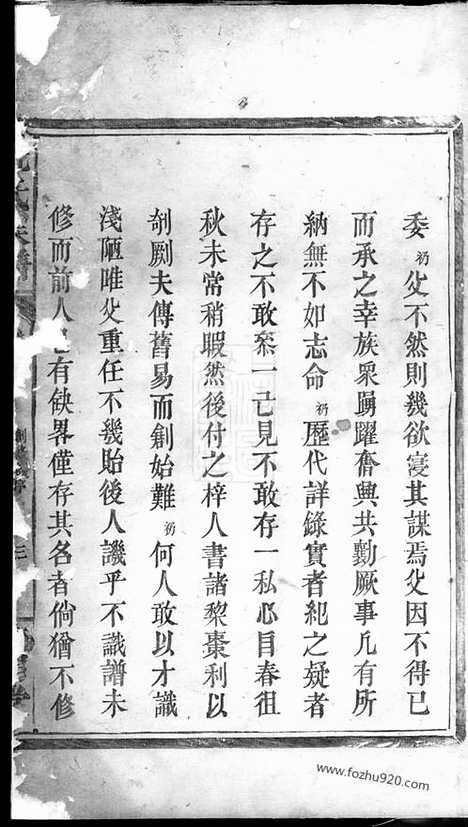 委礽父不然則幾欲寢其謀焉父因不得已
而承之幸族衆踴躍奮興共勷厥事凡有所
納無不如志命礽歷代詳錄實者紀之疑者
存之不敢叅一己見不敢存一私心目春徂
秋未常稍暇然後付之梓人書諸棃棗利以
剞劂夫傳舊易而創始難礽何人敢以才識
淺陋唯父重任不幾貽後人譏乎不識譜未
修而前人已有缺畧僅存其名者倘猶不修
氏族譜
三
www.fozhu920.com